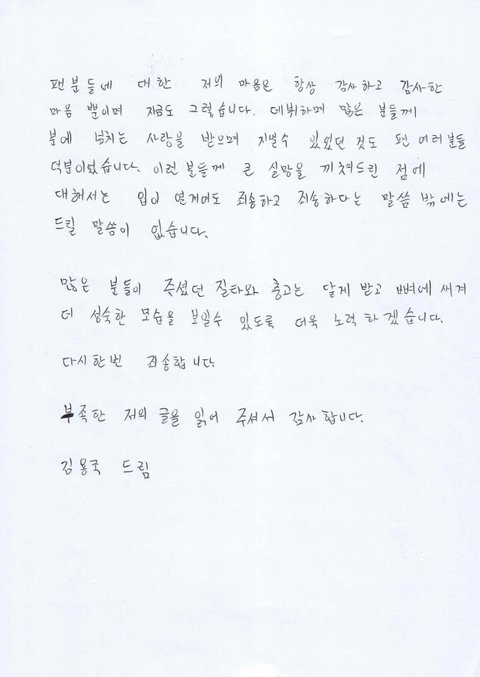 팬분들에 대한 저의 마음은 항상 감사하고 감사한
마음 뿐이며 지금도 그렇습니다. 데뷔하며 많은 분들께
분에 넘치는 사랑을 받으며 지낼수 있었던 것도 팬 여러분들
덕분이었습니다. 이런 분들께 큰 실망을 끼쳐드린 점에
대해서는 입이 열개여도 죄송하고 죄송하다는 말씀 밖에는
드릴 말씀이 없습니다.
많은 분들이 주셨던 질타와 충고는 달게 받고 뼈에 새겨
더 성숙한 모습을 보일수 있도록 더욱 노력하겠습니다.
다시한번 죄송합니다.
부족한 저의 글을 읽어 주셔서 감사합니다.
김용국 드림